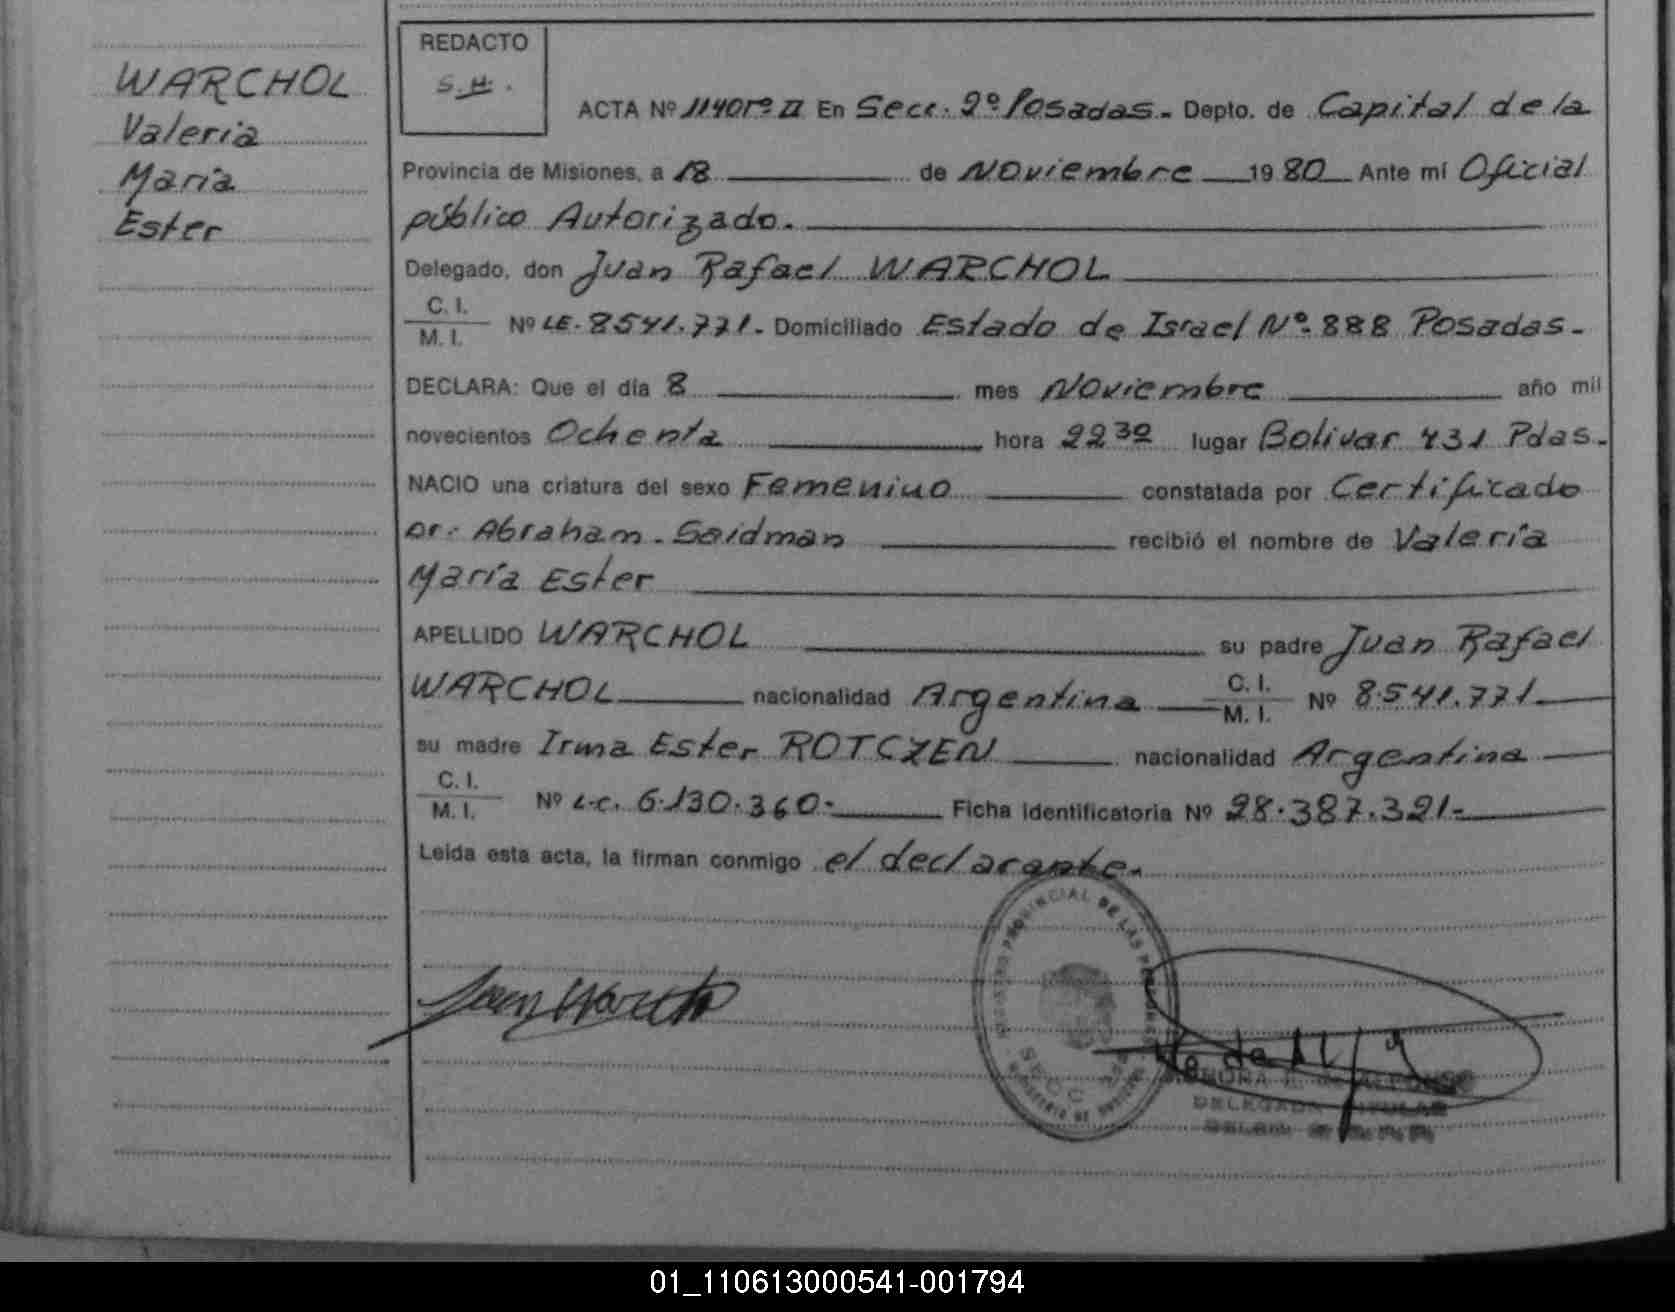 WARCHOL
Valeria
María
Ester
REDACTO
S.H.
ACTA Nº 1140 Tº II En Secc. 2º Posadas.- Depto. de Capital de la
Provincia de Misiones, a 18 de Noviembre 1980 Ante mí Oficial
público Autorizado.
Delegado, don Juan Rafael WARCHOL
C. I.
M. I. Nº LE. 8541.771.- Domiciliado Estado de Israel Nº 888 Posadas.-
DECLARA: Que el día 8 mes Noviembre año mil
novecientos Ochenta hora 22 30 lugar Bolivar 431 Pdas.-
NACIO una criatura del sexo Femenino constatada por Certificado
Dr. Abraham. Saidman recibió el nombre de Valeria
María Ester
APELLIDO WARCHOL su padre Juan Rafael
WARCHOL nacionalidad Argentina C. I. M. I. Nº 8.541.771
su madre Irma Ester ROTCZEN nacionalidad Argentina
C. I.
M. I. Nº L.C. 6.130.360.- Ficha identificatoria Nº 28.387.321.-
Leída esta acta, la firman conmigo el declarante.
PROVINCIAL DE LAS
SECC
DELEGADA TITULAR
01_110613000541-001794